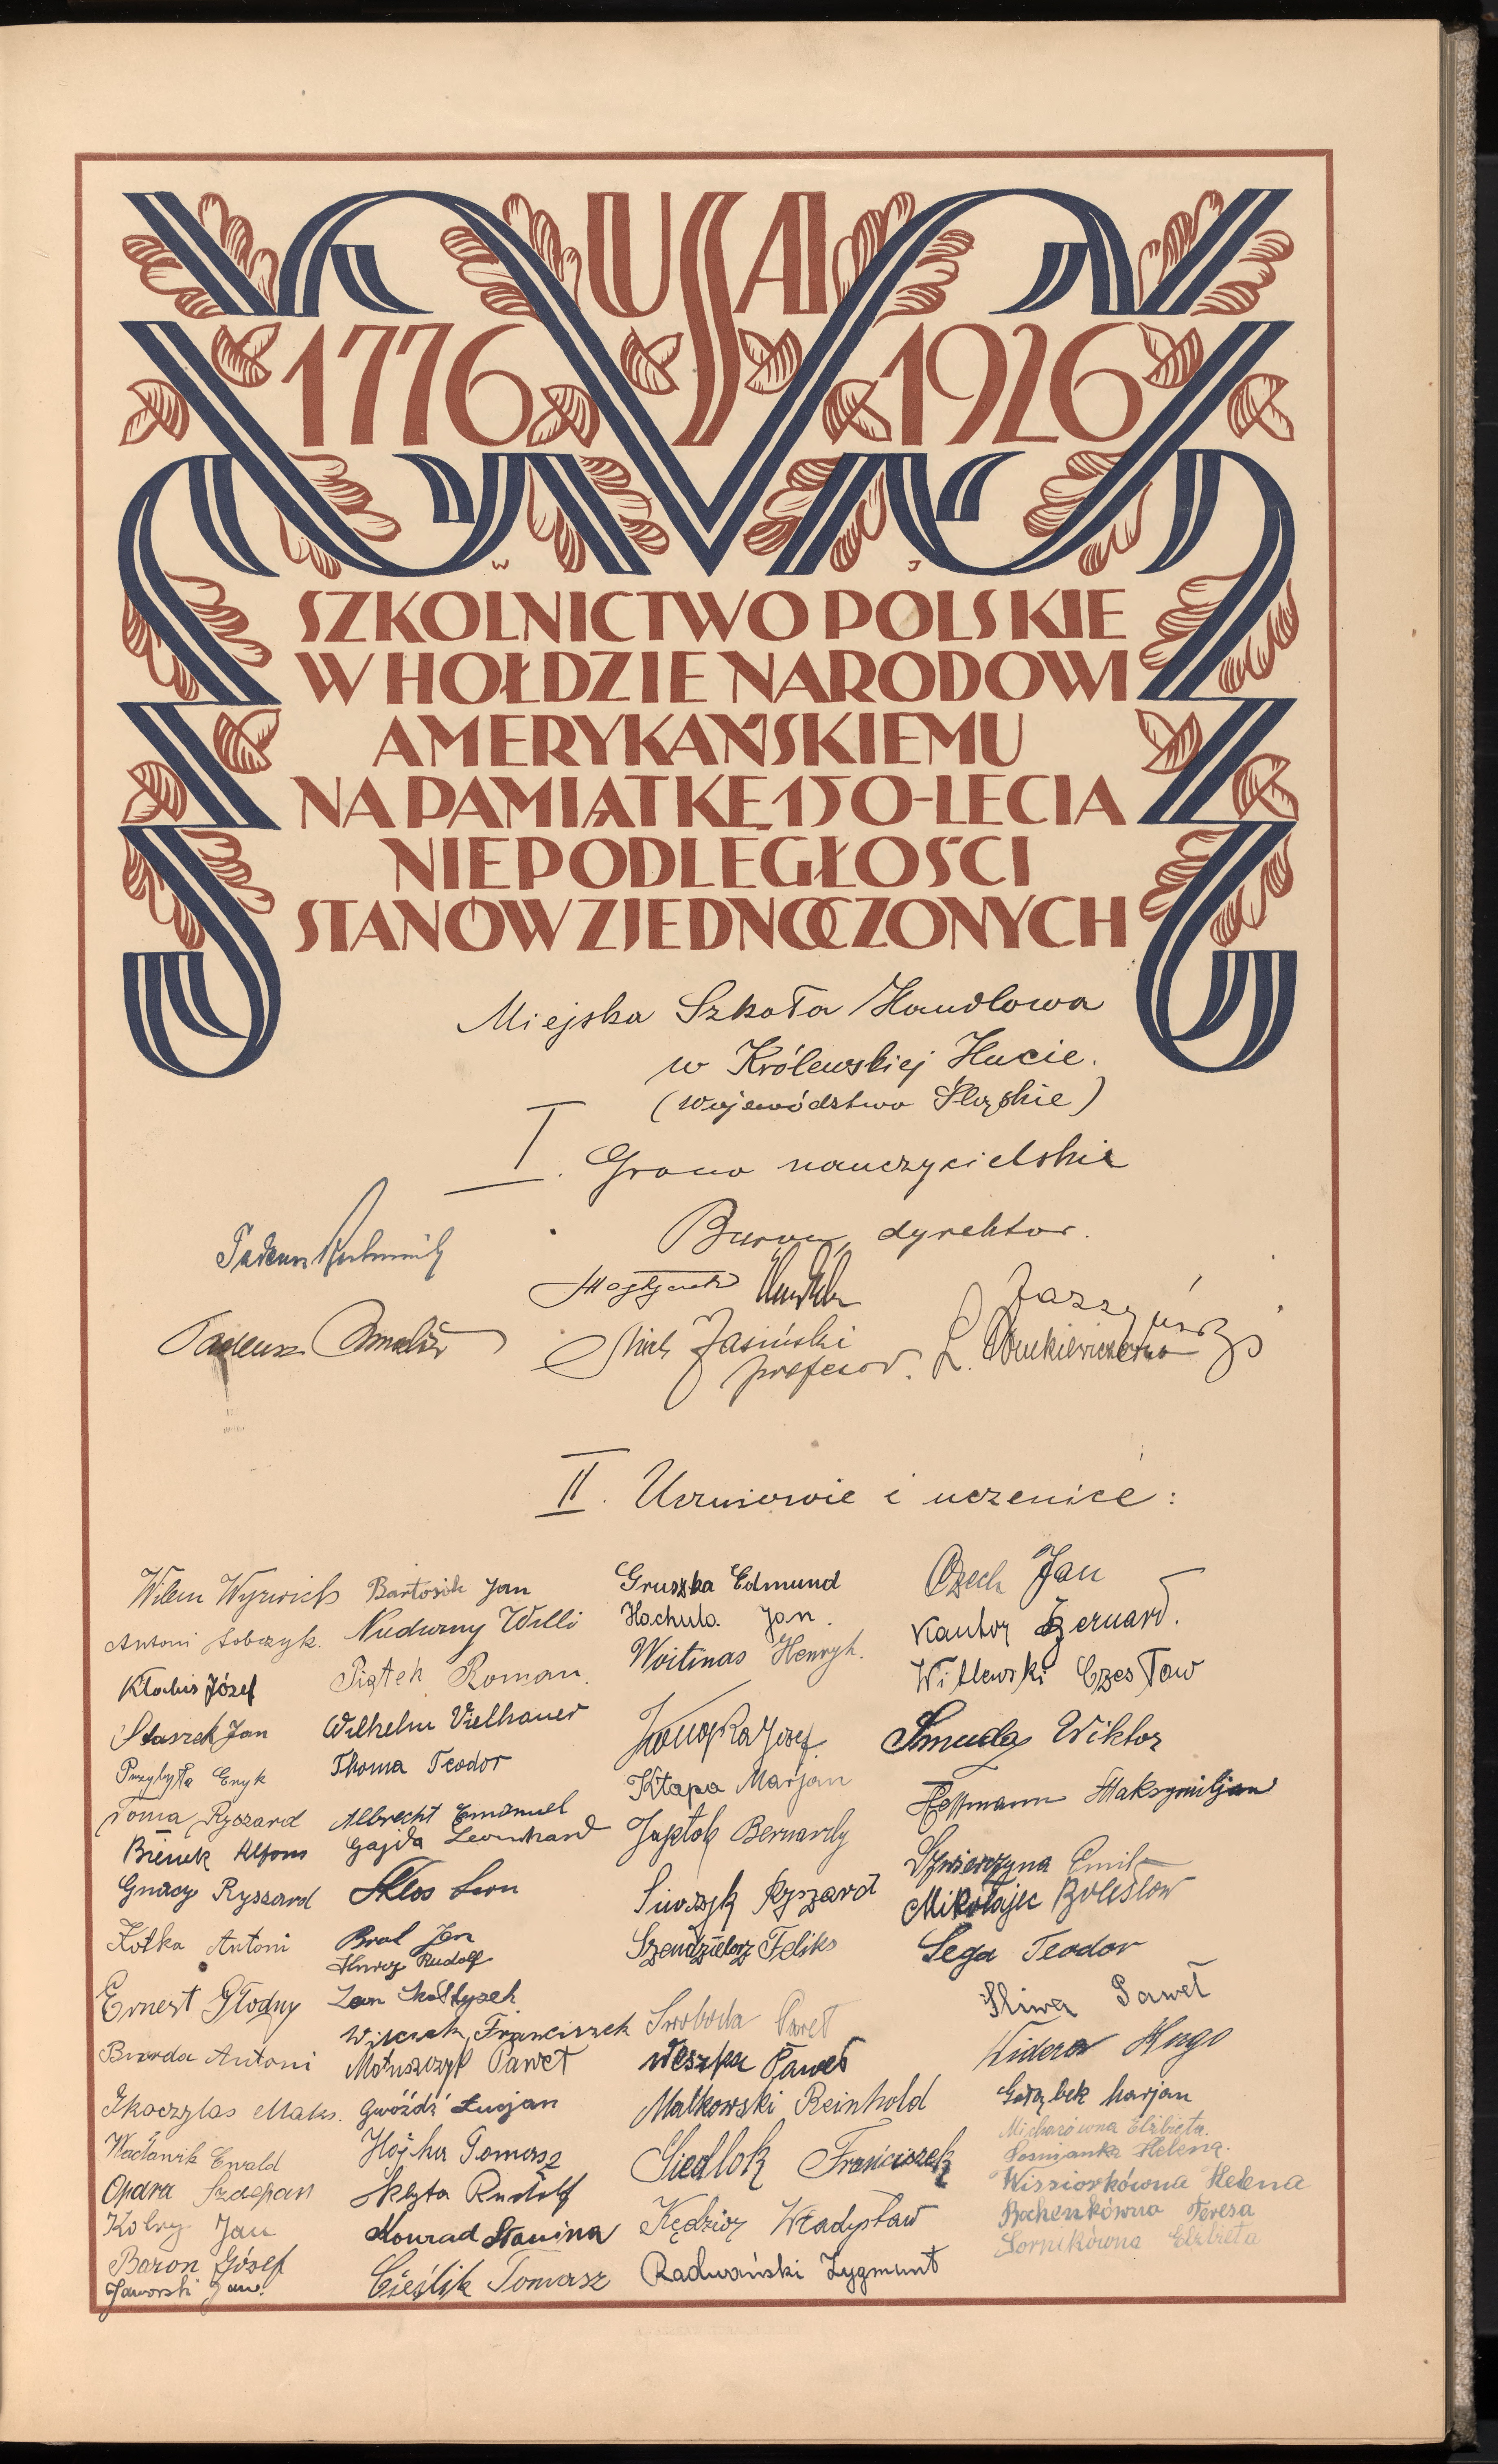 USA
1776 1926
W J
SZKOLNICTWO POLSKIE
W HOŁDZIE NARODOWI
AMERYKAŃSKIEMU
NA PAMIĄTKĘ 150-LECIA
NIEPODLEGŁOŚCI
STANÓW ZJEDNOCZONYCH
Miejska Szkoła Handlowa
w Królewskiej Hucie.
(Województwo Śląskie)
I. Grono nauczycielskie
dyrektor.
Tadeusz
Tadeusz
Jasiński
profesor.
L.
II. Uczniowie i uczenice:
Wilem Wyrwich
Antoni Sobczyk.
Klabis Józef
Staszek Jan
Przybyła Eryk
Toma Ryszard
Bienek Alfons
Gnacy Ryszard
Kotka Antoni
Ernest Głodny
Antoni
Tkaczylas Maks.
Wacławik Ewald
Opara Szczepan
Kobry Jan
Baron Józef
Jaworski Jan.
Bartosik Jan
Nudurny Willi
Piątek Roman.
Wilhelm Vielhauer
Thoma Teodor
Albrecht Emanuel
Gajda Leonhard
Kłos Leon
Bral Jan
Rudolf
Leon Skołtysek
Franciszek
Matuszczyk Paweł
Gwóźdź Łucjan
Hojka Tomasz
Skłyta Rudolf
Konrad Stanina
Cieślik Tomasz
Gruszka Edmund
Hachuła Jan.
Woitinas Henryk.
Józef
Kłapa Marjan
Bernardy
Siwczyk Ryszard
Szendzielorz Feliks
Swoboda Paweł
Weszka Paweł
Malkowski Reinhold
Siedlok Franciszek
Kędzior Władysław
Radwański Zygmunt
Czech Jan
Kantor Bernard.
Witlewski Czesław
Smuda Wiktor
Hoffmann Maksymiljan
Szwierczyna Emil
Mikołajec Bolesław
Sega Teodor
Śliwa Paweł
Widera Hugo
Gołąbek Marjan
Elżbieta.
Sośnianka Helena.
Wissiorkówna Helena
Bochenkówna Teresa
Sornikówna Elżbieta